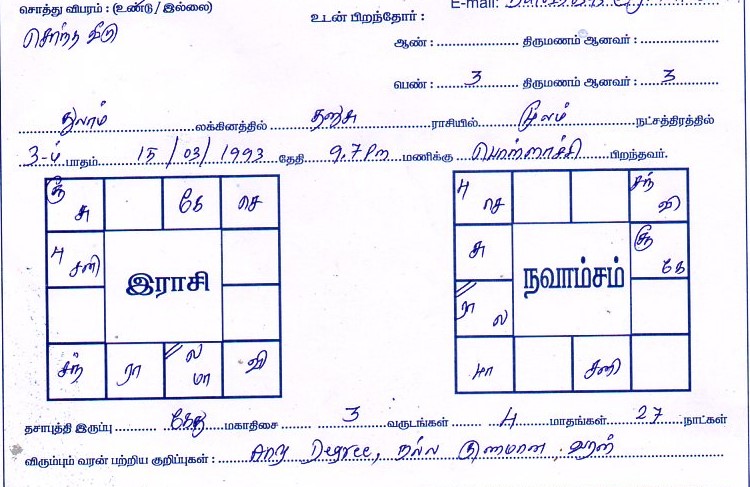 சொத்து விபரம் : (உண்டு / இல்லை)
E-mail:
சொந்த வீடு
உடன் பிறந்தோர் :
ஆண் : திருமணம் ஆனவர் :
பெண் : 3 திருமணம் ஆனவர் : 3
துலாம் லக்கினத்தில் தனுசு ராசியில் மூலம் நட்சத்திரத்தில்
3-ம் பாதம் 15/03/1993 தேதி 9.7 Pm மணிக்கு பொள்ளாச்சி பிறந்தவர்.
சூ சு கே செ
பு சனி
இராசி
சந் ரா ல மா வி
பு செ சந் வி
சு சூ கே
நவாம்சம்
ரா ல
மா சனி
தசாபுத்தி இருப்பு கேது மகாதிசை 3 வருடங்கள் 4 மாதங்கள் 27 நாட்கள்
விரும்பும் வரன் பற்றிய குறிப்புகள் : Any Degree, நல்ல குணமான வரன்